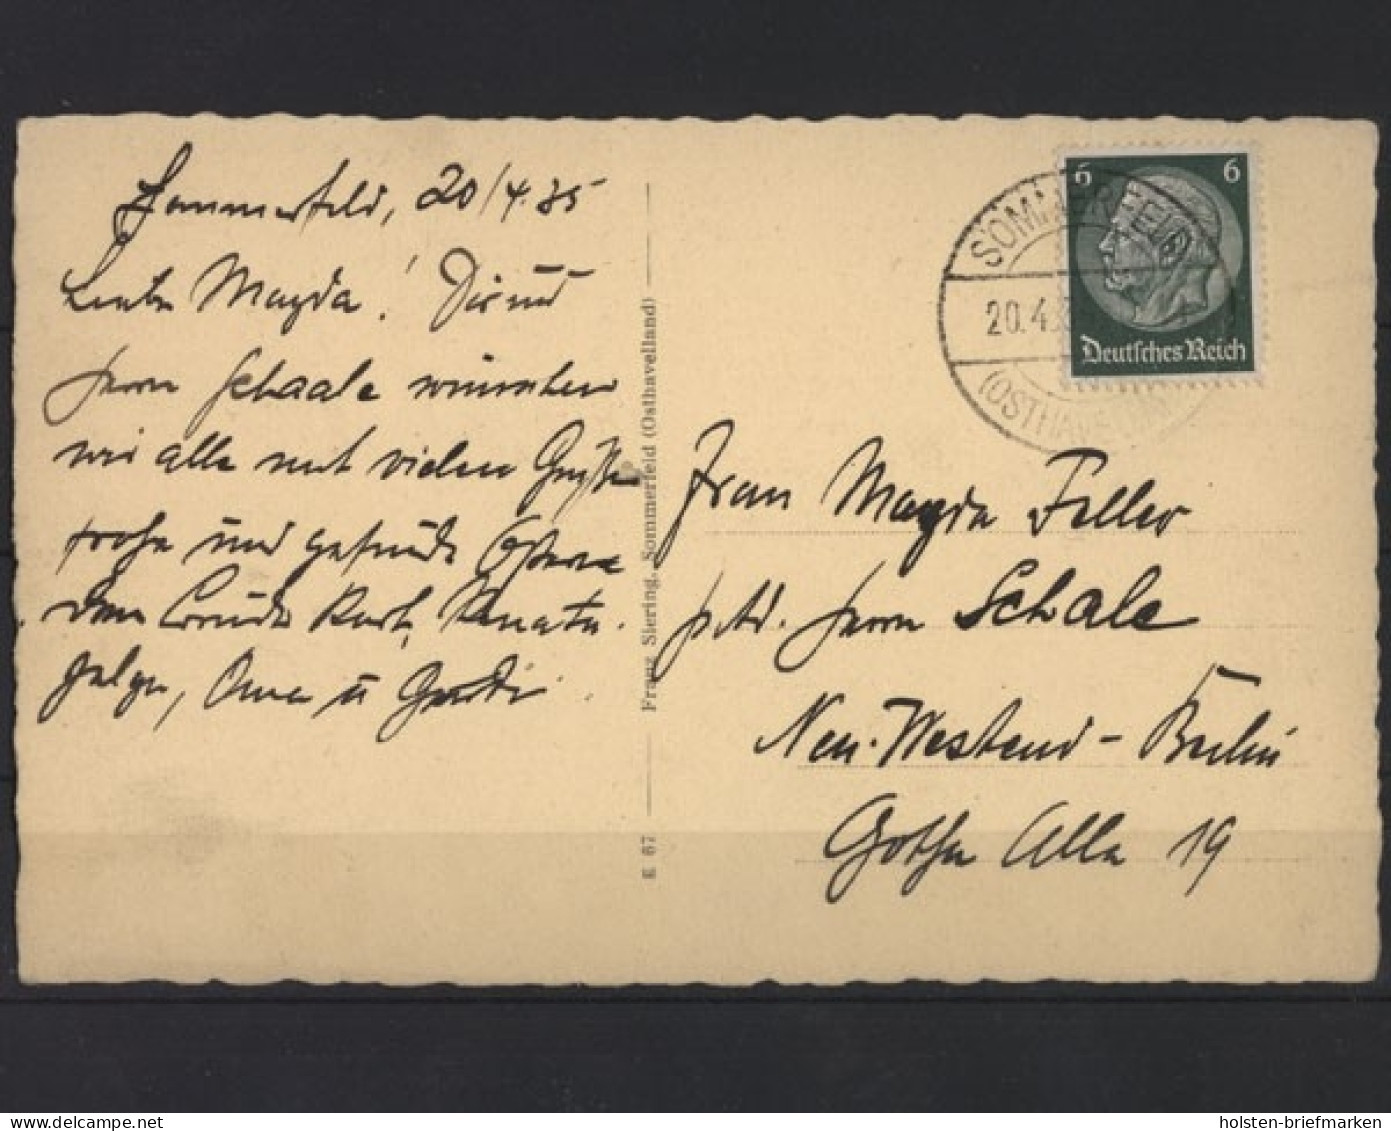 Sommerfeld, 20/4.35
Liebe Magda! Dir und
Herrn Schaale wünschen
wir alle mit vielen Grüßen
frohe und gesunde Ostern
Kurt, Renate
Helga, u
Franz Siering, Sommerfeld (Osthavelland)
E 67
SOMMERFELD
20.4.3
(OSTHAVELLAND
6 6
Deutsches Reich
Frau Magda Feller
Herrn Schale
Neu-Westend-Berlin
Gotha Allee 19
holsten-briefmarken